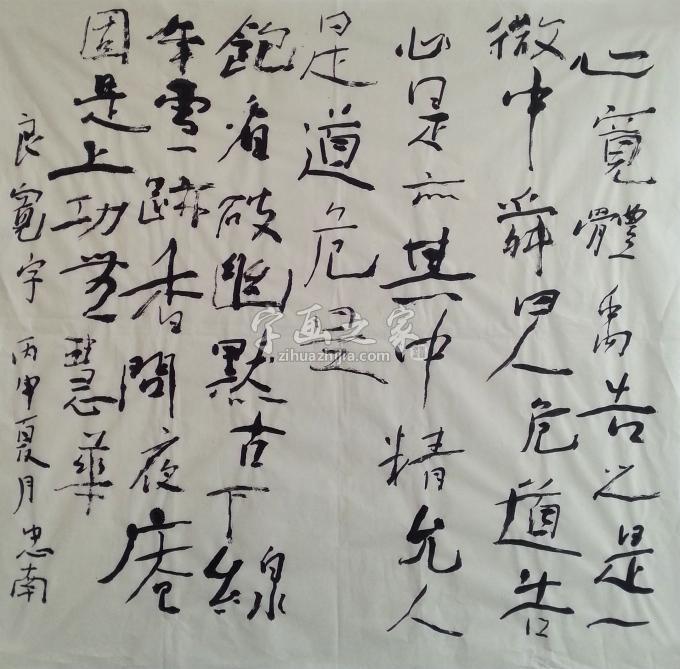 心寬體禹告之是一
微中舜曰人危道告
心是其中精允人
是道危
飽看破點古下線
年雪一跡香問夜庵
固是上功慧華
良寬字 丙申夏月忠南
字画之家
zihuazhijia.com